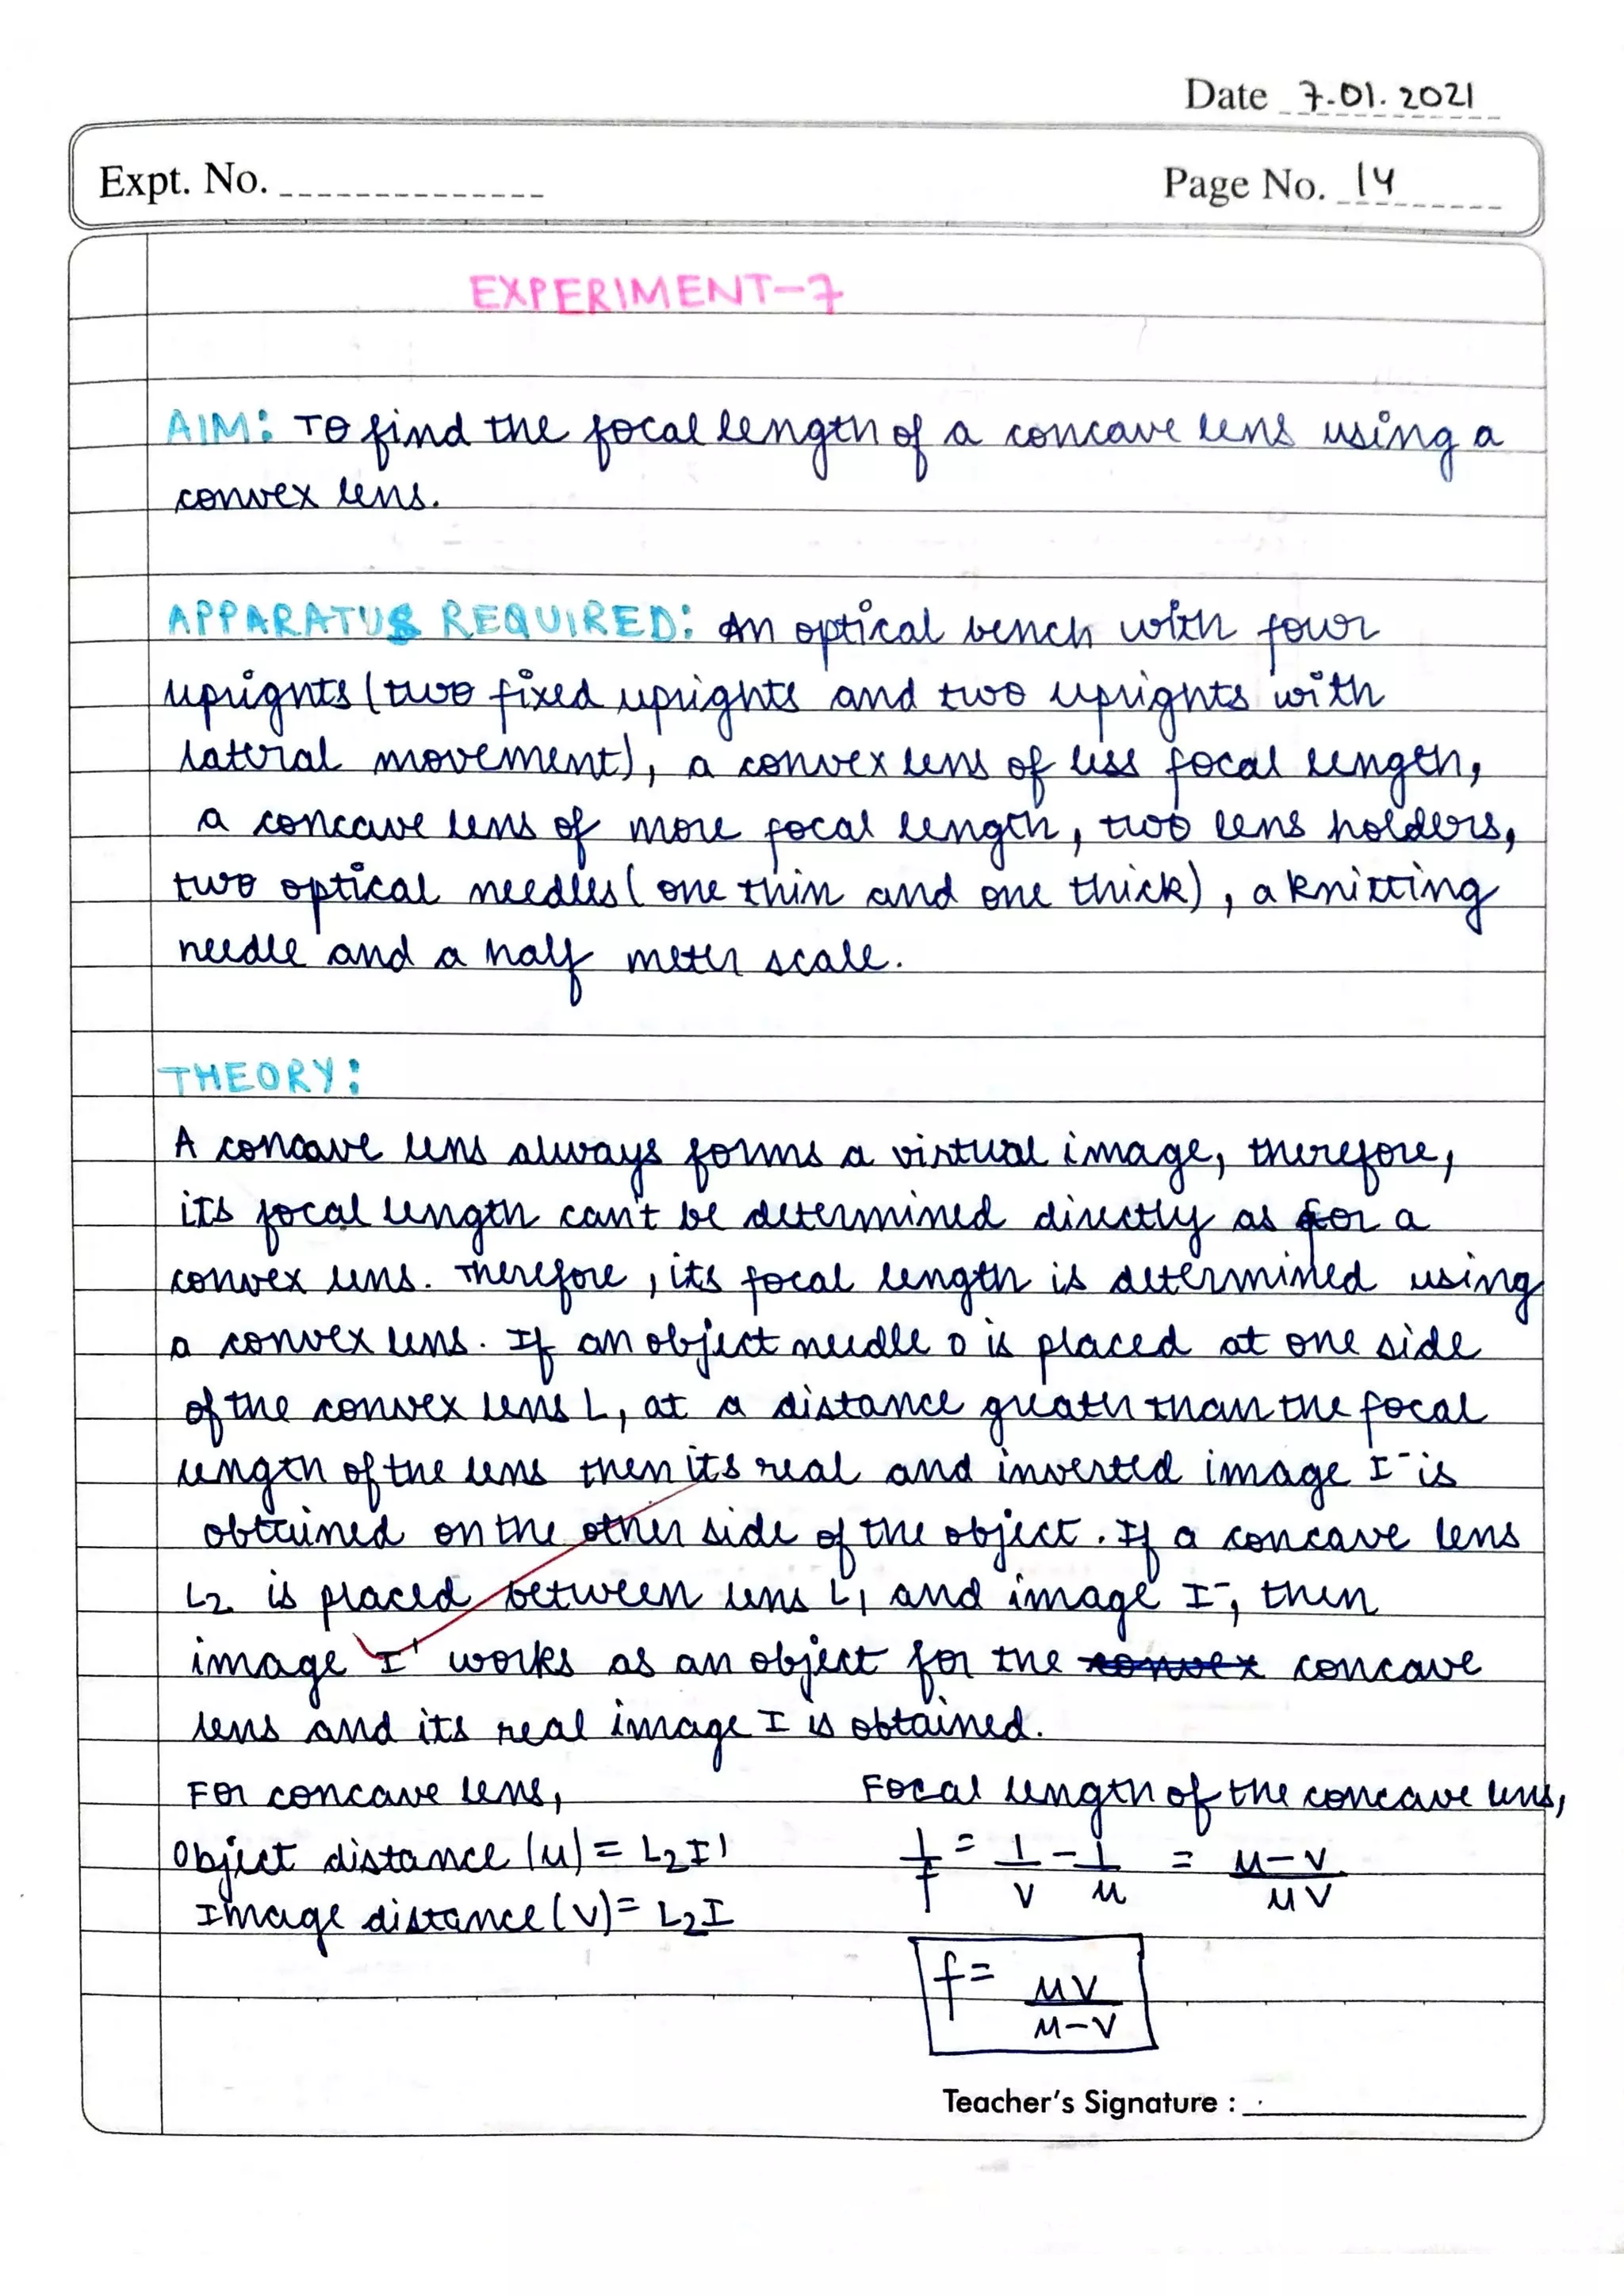 Date 7.01.2021
Expt. No.
Page No. 14
EXPERIMENT-7
AIM: To find the focal length of a concave lens using a
convex lens.
APPARATUS REQUIRED: An optical bench with four
uprights (two fixed uprights and two uprights with
lateral movement), a convex lens of less focal length,
a concave lens of more focal length, two lens holders,
two optical needles (one thin and one thick), a knitting
needle and a half meter scale.
THEORY:
A concave lens always forms a virtual image, therefore,
its focal length can't be determined directly as for a
convex lens. Therefore, its focal length is determined using
a convex lens. If an object needle O is placed at one side
of the convex lens L, at a distance greater than the focal
length of the lens then its real and inverted image I⁻ is
obtained on the other side of the object. If a concave lens
L2 is placed between lens L1 and image I⁻, then
image I' works as an object for the convex concave
lens and its real image I is obtained.
For concave lens,
Object distance (u) = L2I'
Image distance (v) = L2I
Focal length of the concave lens,
1/f = 1/v - 1/u = u-v/uv
f = uv/u-v
Teacher's Signature :